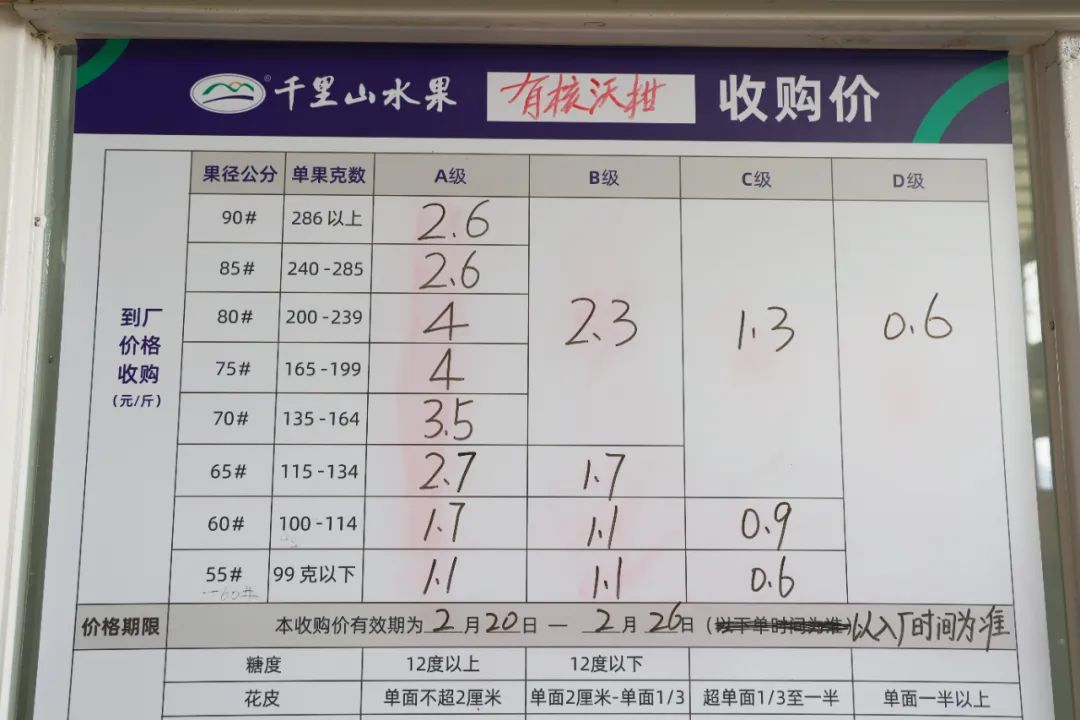 千里山水果 ® 有核沃柑 收购价
果径公分 单果克数 A级 B级 C级 D级
到厂价格收购(元/斤)
90# 286以上 2.6
85# 240-285 2.6
80# 200-239 4 2.3 1.3 0.6
75# 165-199 4
70# 135-164 3.5
65# 115-134 2.7 1.7
60# 100-114 1.7 1.1 0.9
55# 99克以下 1.1 1.1 0.6
一60#
价格期限 本收购价有效期为2月20日 — 2月26日(以下单时间为准)以入厂时间为准
糖度 12度以上 12度以下
花皮 单面不超2厘米 单面2厘米-单面1/3 超单面1/3至一半 单面一半以上